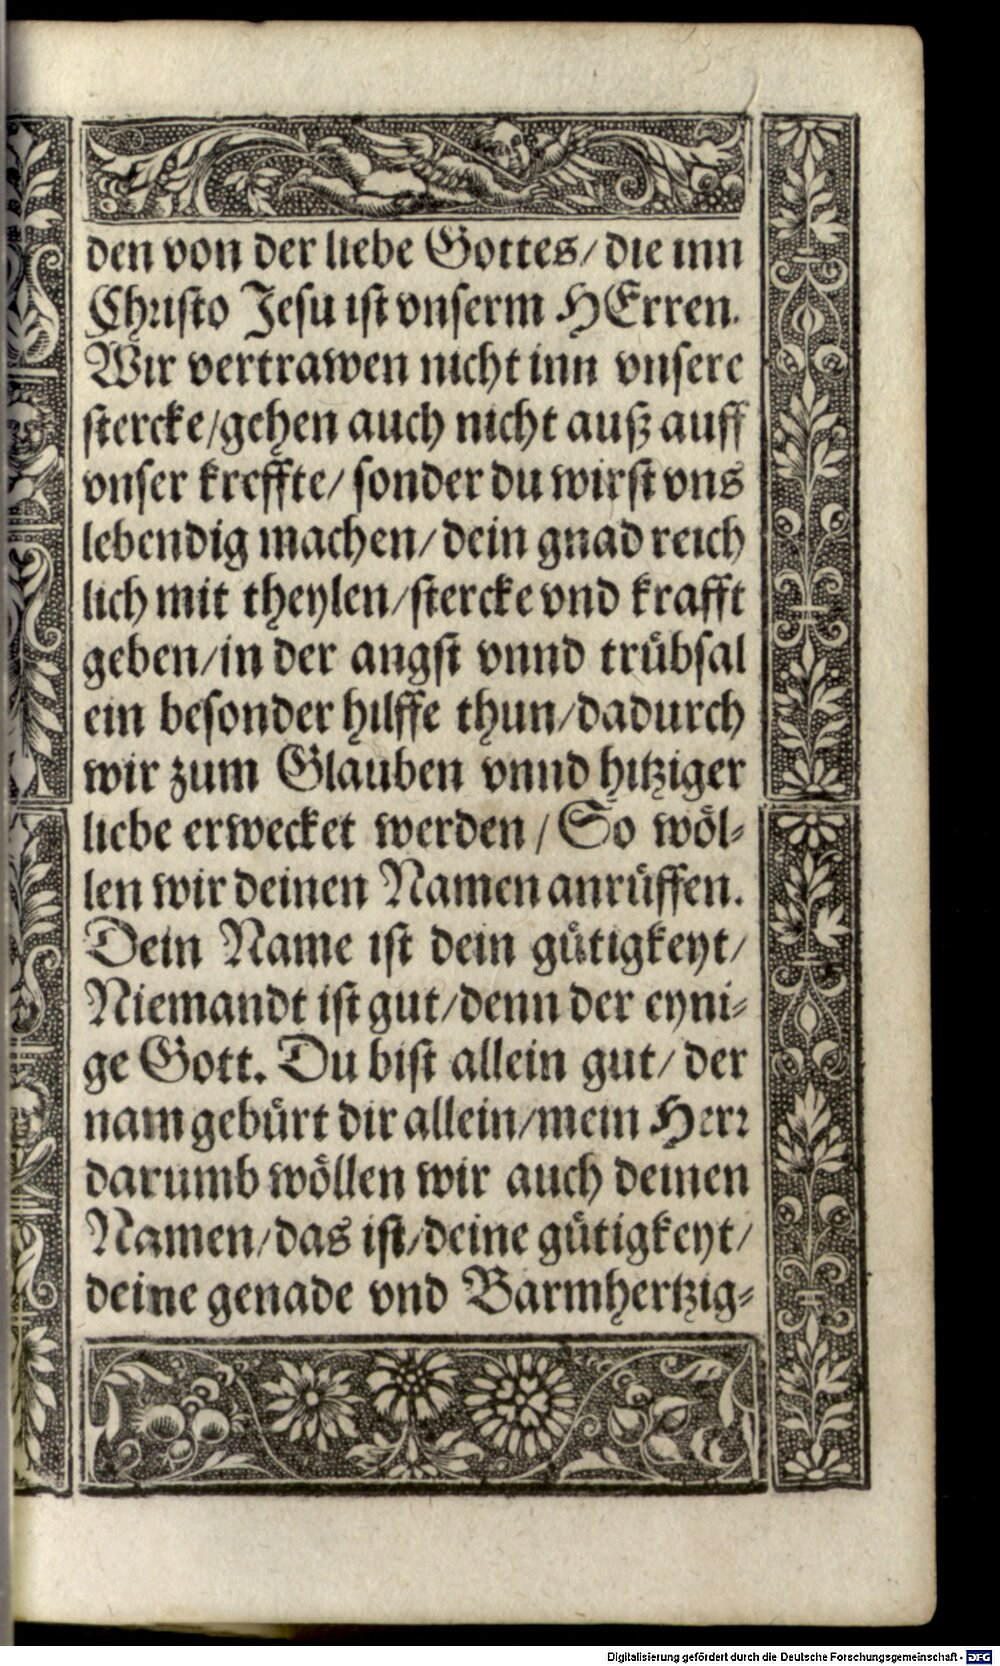 den von der liebe Gottes/ die inn
Christo Jesu ist vnserm HErren.
Wir vertrawen nicht inn vnsere
stercke/gehen auch nicht auß auff
vnser kreffte/ sonder du wirst vns
lebendig machen/ dein gnad reich
lich mit theylen/stercke vnd krafft
geben/in der angst vnnd trübsal
ein besonder hilffe thun/dadurch
wir zum Glauben vnnd hitziger
liebe erwecket werden / So wöl-
len wir deinen Namen anrüffen.
Dein Name ist dein gütigkeyt/
Niemandt ist gut/denn der eyni-
ge Gott. Du bist allein gut/ der
nam gebürt dir allein/mein Herr
darumb wöllen wir auch deinen
Namen/das ist/deine gütigkeyt/
deine genade vnd Barmhertzig-
Digitalisierung gefördert durch die Deutsche Forschungsgemeinschaft - DFG